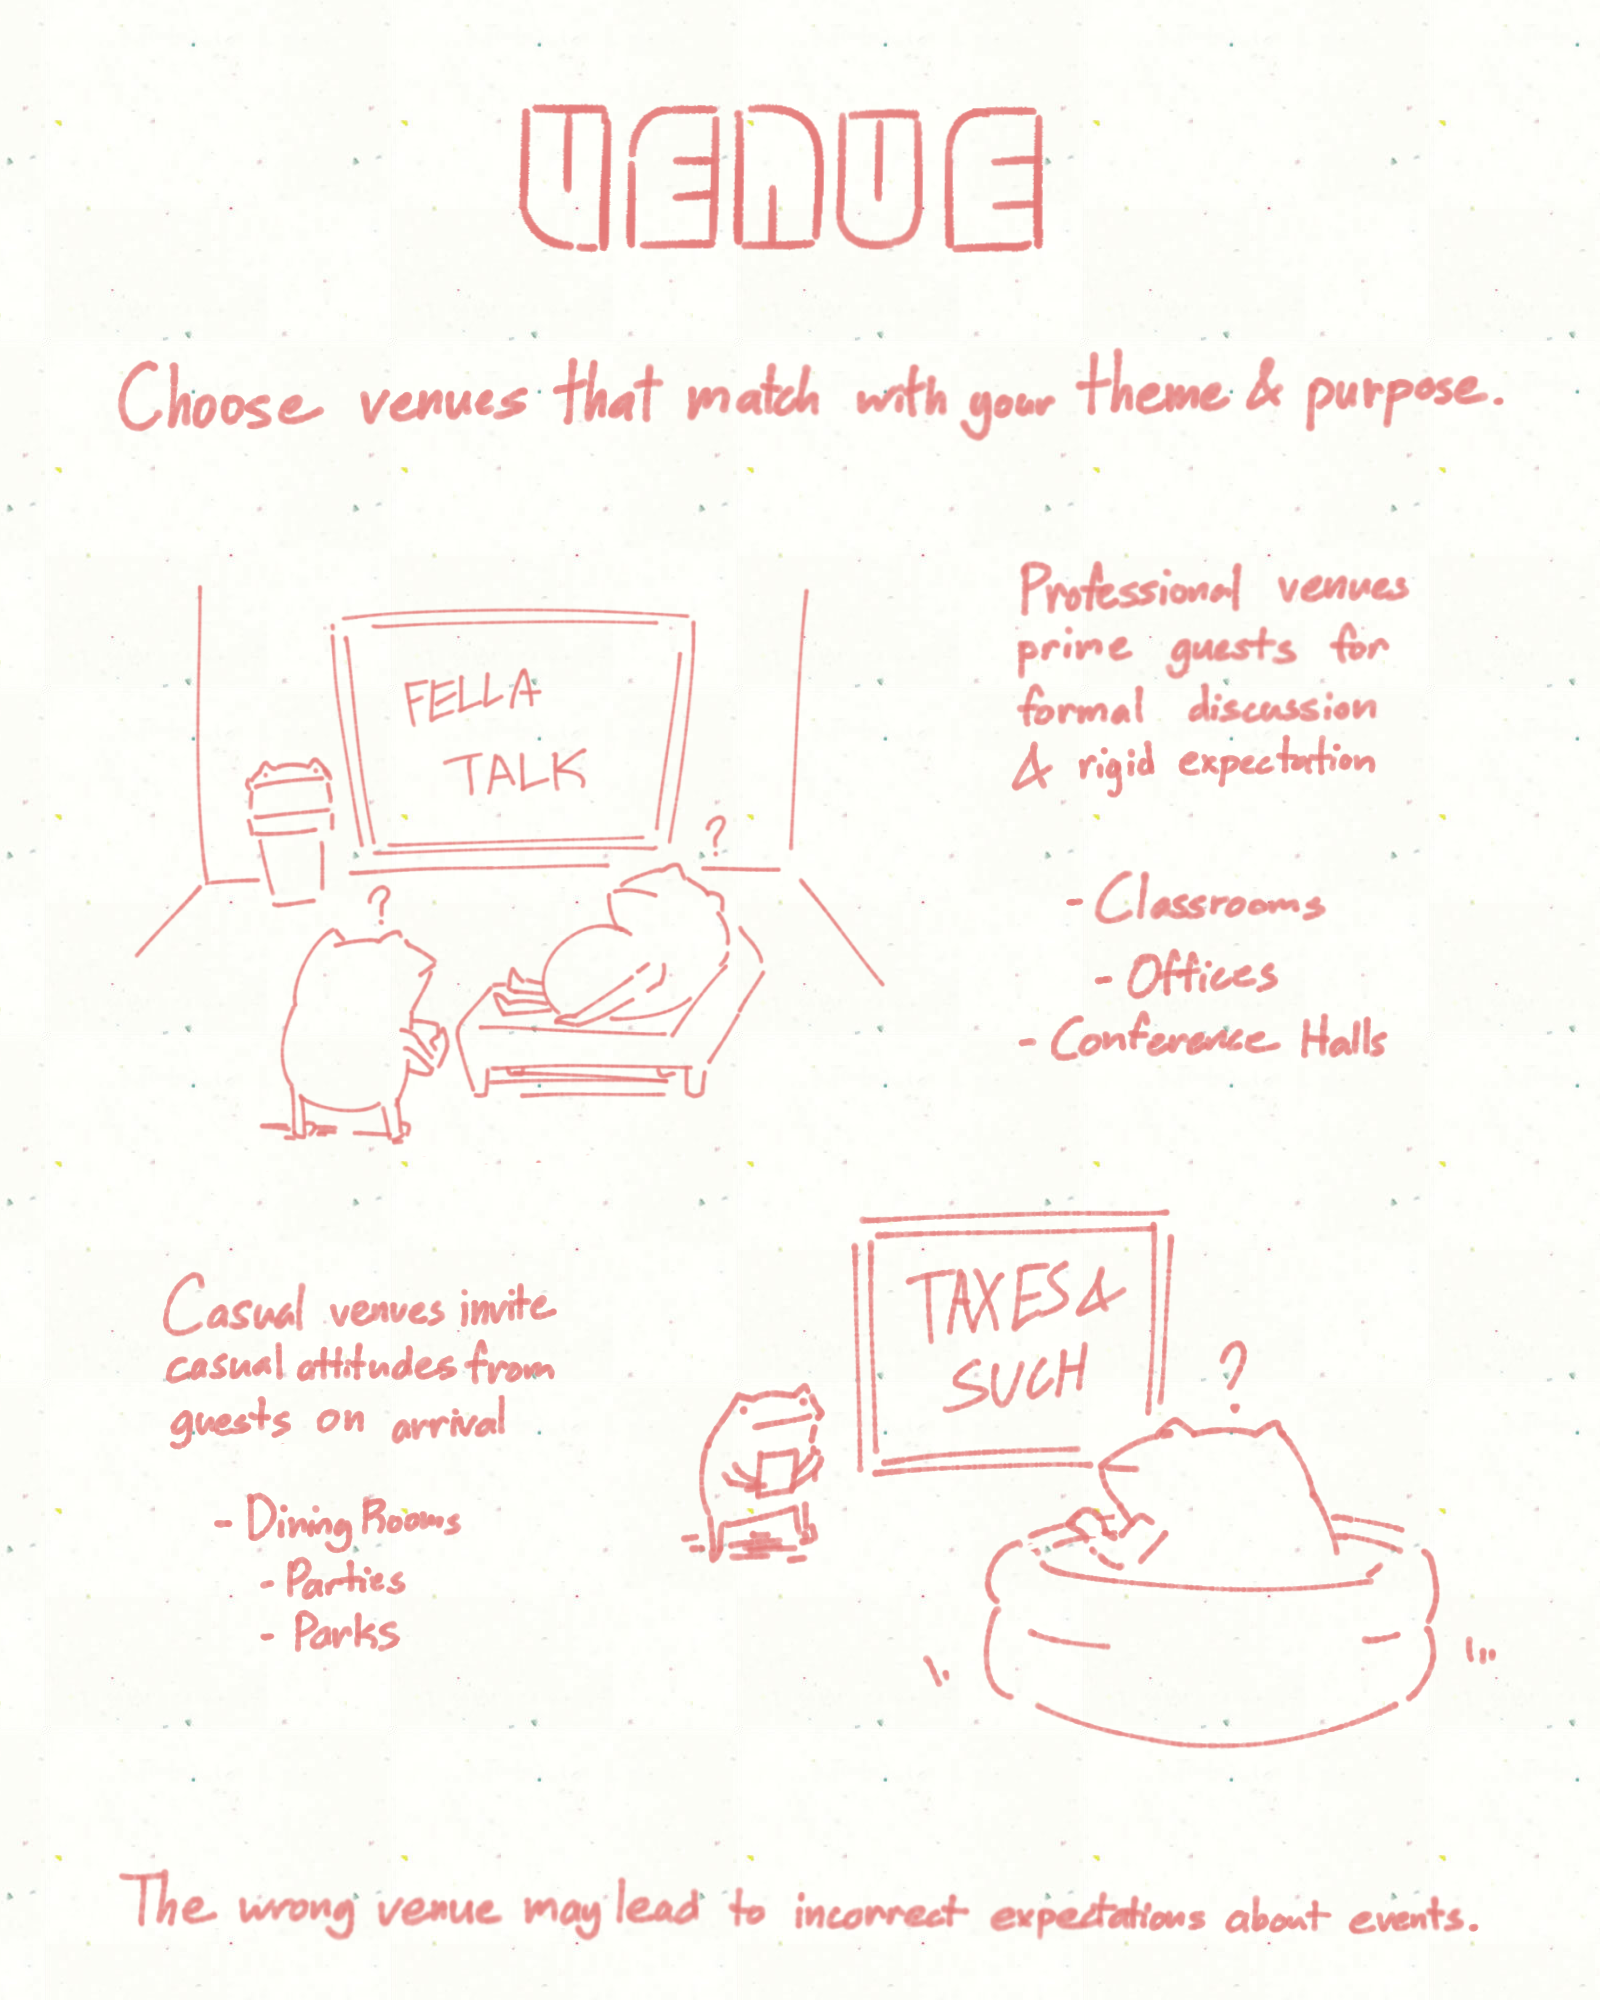 VENUE
Choose venues that match with your theme & purpose.
FELLA
TALK
?
?
Professional venues
prime guests for
formal discussion
& rigid expectation
- Classrooms
- Offices
- Conference Halls
Casual venues invite
casual attitudes from
guests on arrival
- Dining Rooms
- Parties
- Parks
TAXES &
SUCH
?
The wrong venue may lead to incorrect expectations about events.